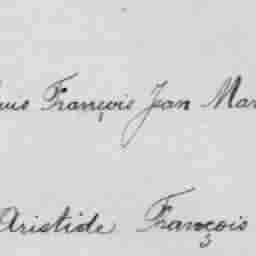 uis François Jean Mar
Aristide François